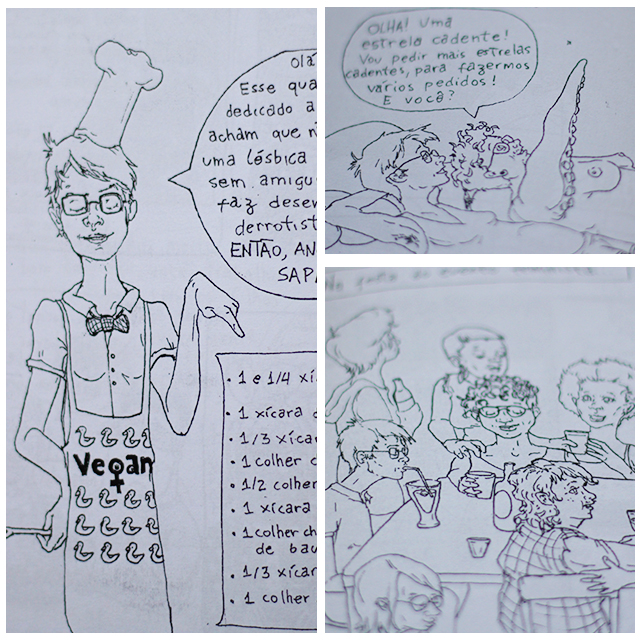 Olá
Esse qua
dedicado a
acham que n
uma lésbica
sem amigu
faz desen
derrotist
ENTÃO, AN
SAPA
Vegan
• 1 e 1/4 xí
• 1 xícara
• 1/3 xícar
• 1 colher c
• 1/2 colher
• 1 xícara
• 1 colher ch
de bau
• 1/3 xícar
• 1 colher
OLHA! Uma
estrela cadente!
Vou pedir mais estrelas
cadentes, para fazermos
vários pedidos!
E você?